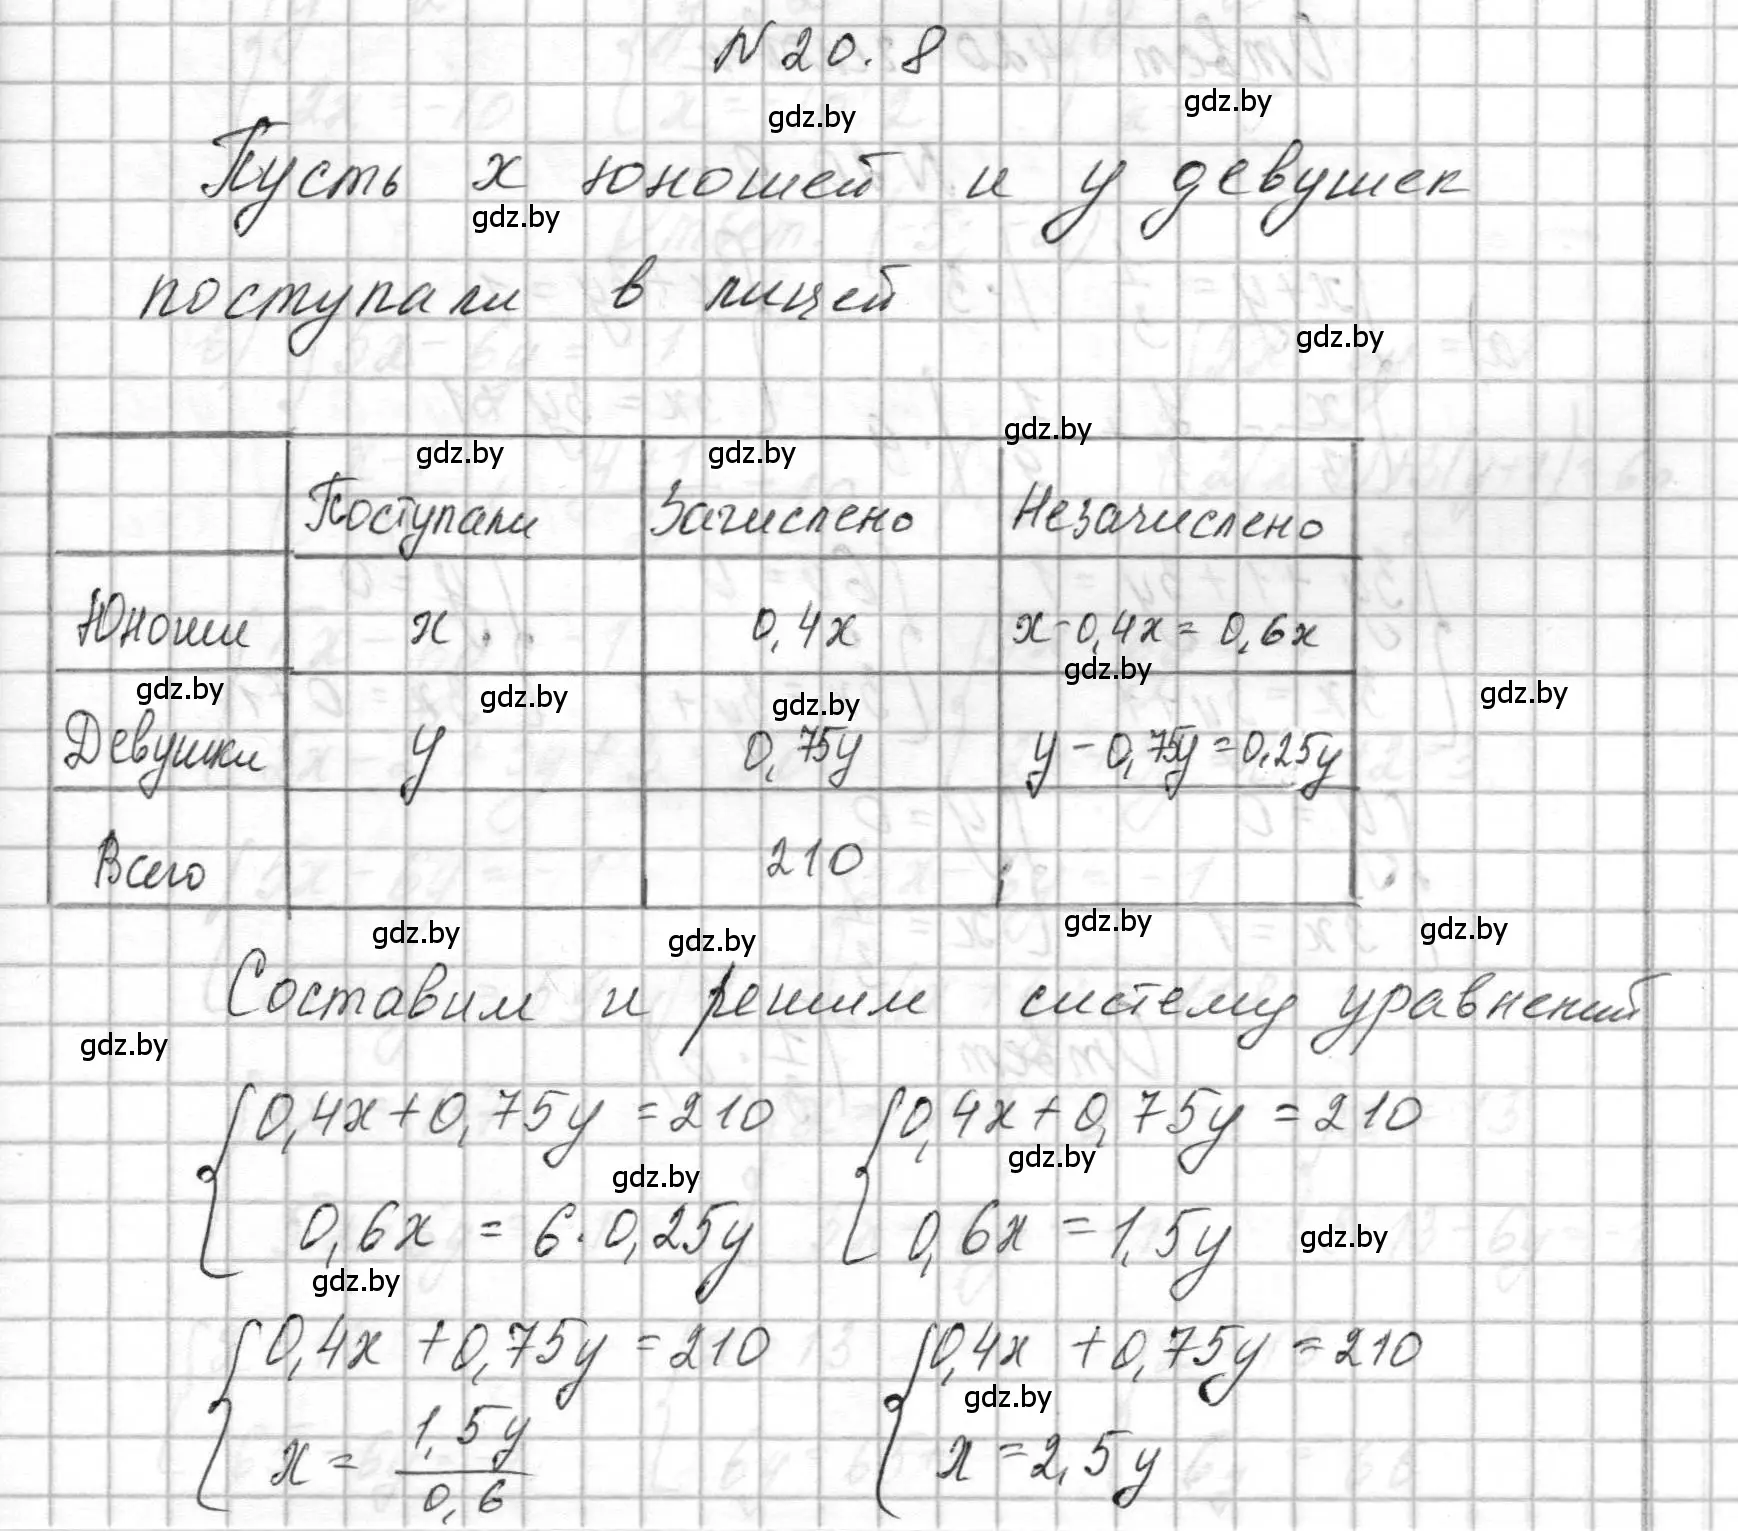 N 20.8
gdz.by
gdz.by
Пусть x юношей и y девушек
gdz.by
поступали в лицей
gdz.by
gdz.by
gdz.by gdz.by
Поступали Зачислено Незачислено
Юноши x 0,4x x-0,4x=0,6x
gdz.by
gdz.by gdz.by gdz.by gdz.by
Девушки y 0,75y y-0,75y=0,25y
Всего 210
gdz.by gdz.by gdz.by gdz.by
Составим и решим систему уравнений
gdz.by
{0,4x+0,75y=210 {0,4x+0,75y=210
gdz.by gdz.by
0,6x = 6·0,25y 0,6x=1,5y gdz.by
gdz.by
{0,4x+0,75y=210 {0,4x+0,75y=210
gdz.by
x = 1,5y/0,6 x=2,5y